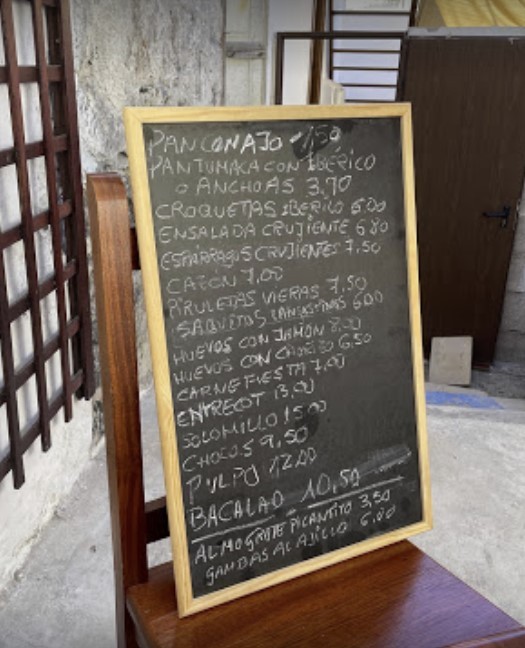 PAN CON AJO 1,50
PANTUMACA CON IBÉRICO
O ANCHOAS 3.70
CROQUETAS IBERICO 6.00
ENSALADA CRUJIENTE 6.80
ESPÁRRAGOS CRUJIENTES 7,50
CAZÓN 7,00
PIRULETAS VIERAS 7.50
SAQUITOS LANGOSTINOS 6.00
HUEVOS CON JAMON 8.00
HUEVOS CON CHORIZO 6.50
CARNE FIESTA 7,00
ENTRECOT 13.00
SOLOMILLO 15.00
CHOCOS 9,50
PULPO 12.00
BACALAO - 10,50
ALMOGROTE PICANTITO 3,50
GAMBAS AL AJILLO 6.00